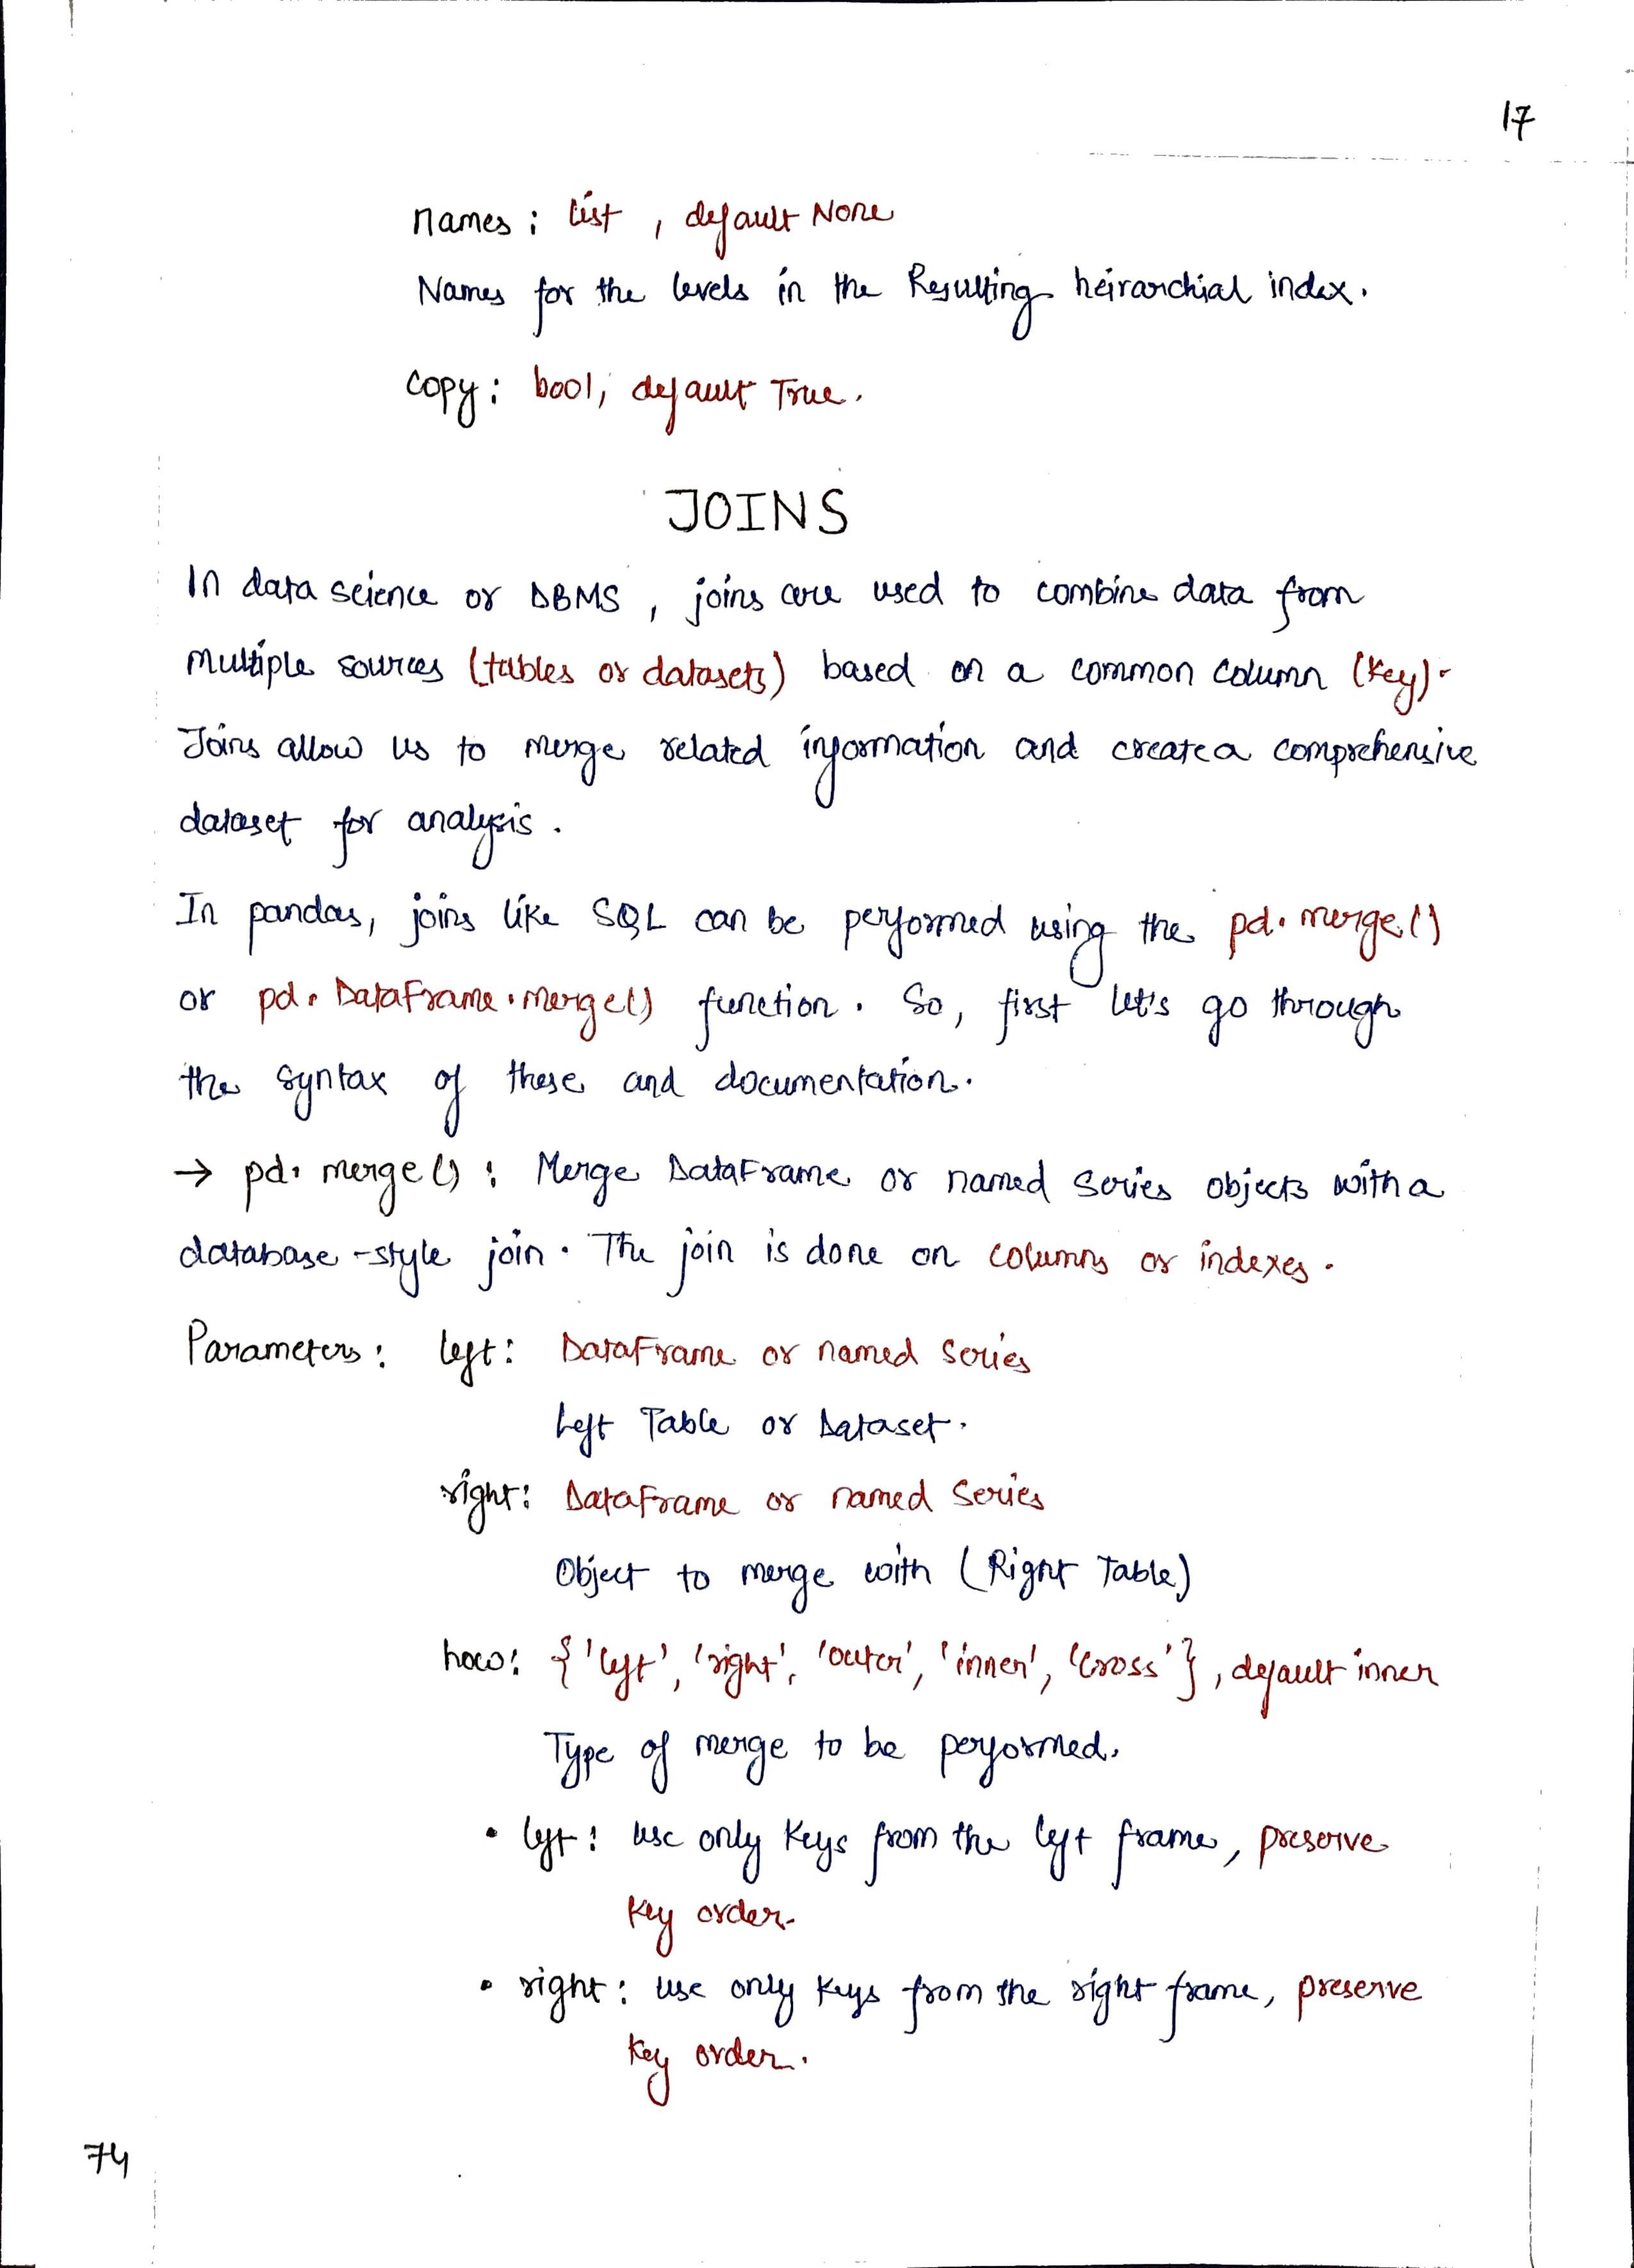 17
names : list , default None
Names for the levels in the Resulting heirarchial index.
copy : bool, default True.
JOINS
In data science or DBMS , joins are used to combine data from
multiple sources (tables or datasets) based on a common column (key).
Joins allow us to merge related information and create a comprehensive
dataset for analysis.
In pandas, joins like SQL can be performed using the pd.merge()
or pd.DataFrame.merge() function. So, first let's go through
the syntax of these and documentation.
→ pd.merge() : Merge DataFrame or named Series objects with a
database-style join. The join is done on columns or indexes.
Parameters : left : DataFrame or named Series
Left Table or Dataset.
right : DataFrame or named Series
Object to merge with (Right Table)
how : {'left', 'right', 'outer', 'inner', 'cross'}, default inner
Type of merge to be performed.
• left : use only keys from the left frame, preserve
key order.
• right : use only keys from the right frame, preserve
key order.
74